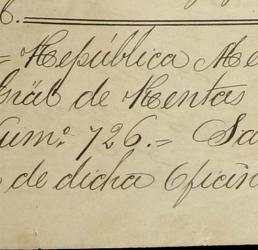 = República Me
Gräl de Rentas
Num.º 726. = Sa
de dicha Oficin